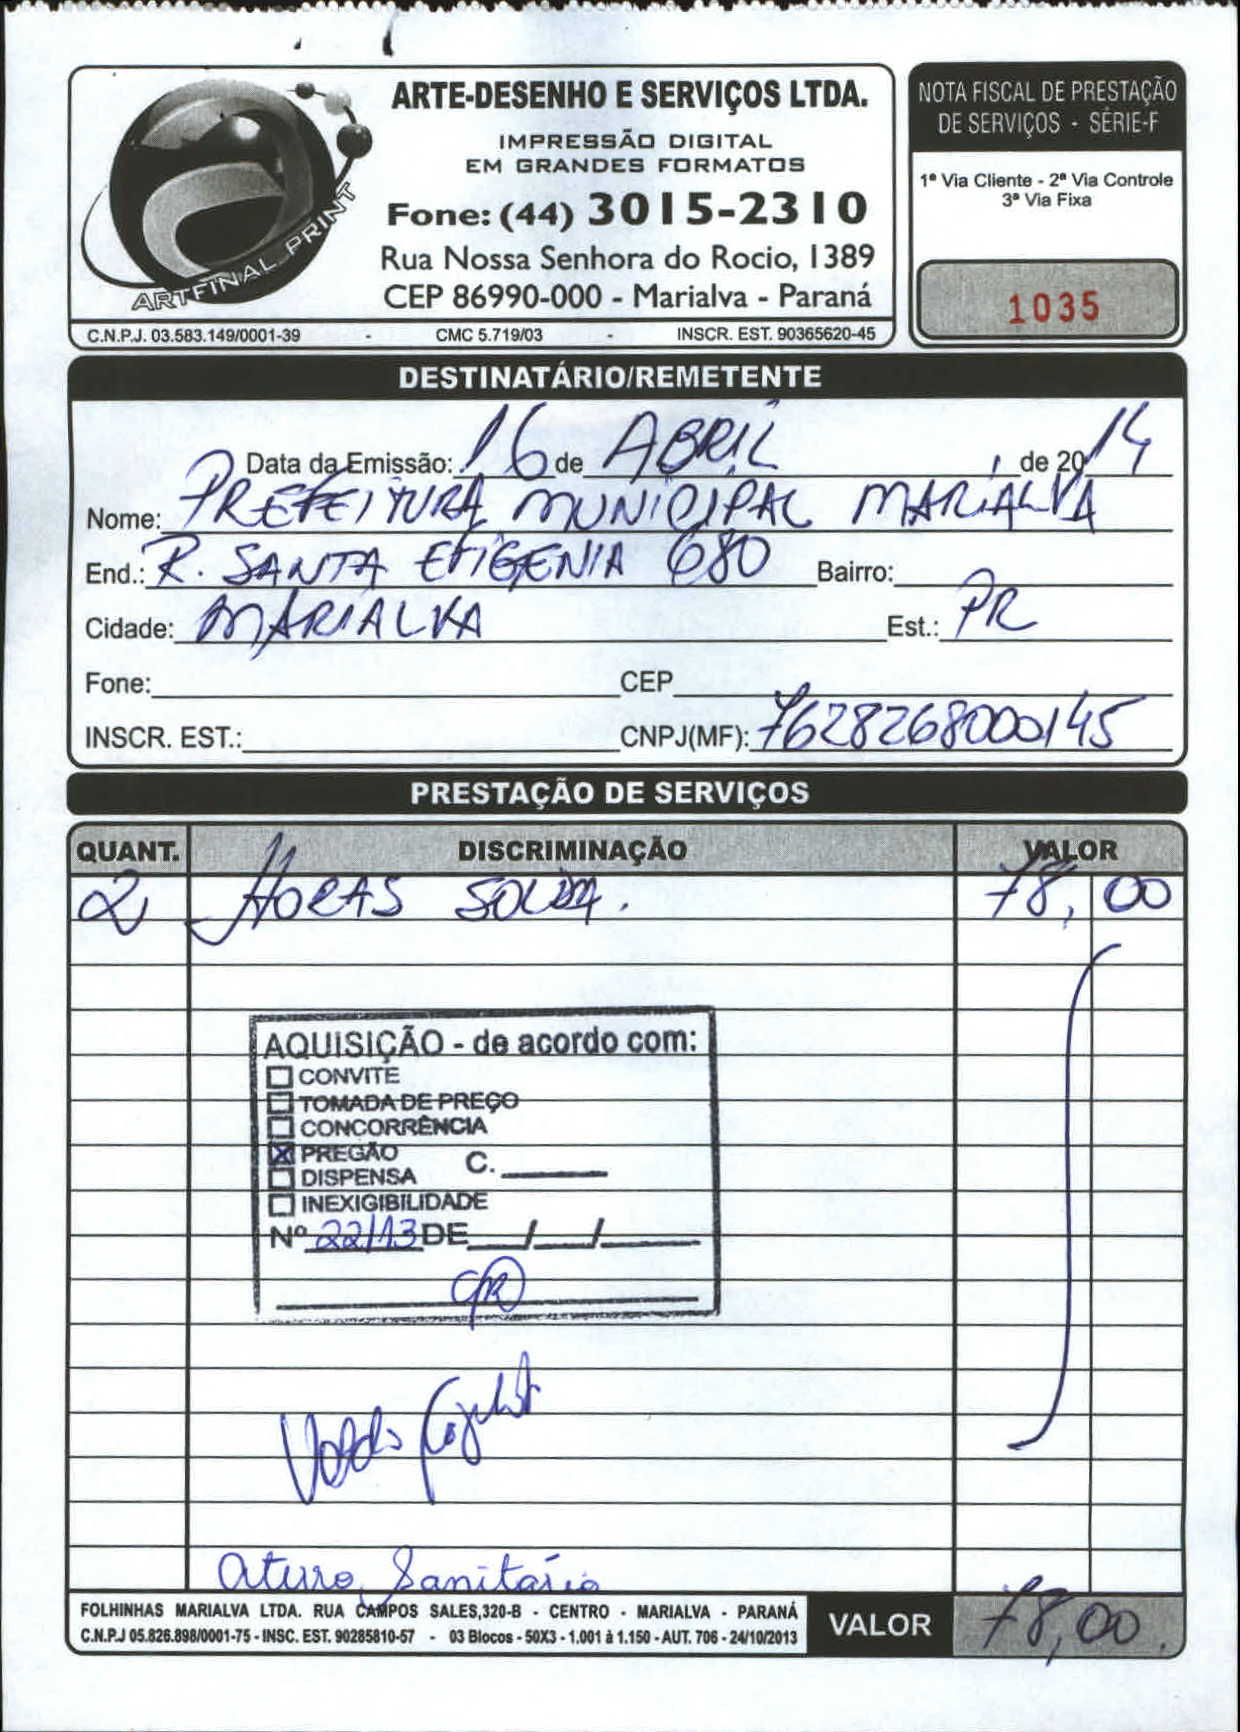 ARTE-DESENHO E SERVIÇOS LTDA.
IMPRESSÃO DIGITAL
EM GRANDES FORMATOS
Fone: (44) 3015-2310
Rua Nossa Senhora do Rocio, 1389
CEP 86990-000 - Marialva - Paraná
ARTFINAL PRINT
C.N.P.J. 03.583.149/0001-39 - CMC 5.719/03 - INSCR. EST. 90365620-45
NOTA FISCAL DE PRESTAÇÃO
DE SERVIÇOS - SÉRIE-F
1ª Via Cliente - 2ª Via Controle
3ª Via Fixa
1035
DESTINATÁRIO/REMETENTE
Data da Emissão: 16 de ABRIL de 2014
Nome: PREFEITURA MUNICIPAL MARIALVA
End.: R. SANTA EFIGENIA 680 Bairro:
Cidade: MARIALVA Est.: PR
Fone: CEP
INSCR. EST.: CNPJ(MF): 76282680000145
PRESTAÇÃO DE SERVIÇOS
QUANT. DISCRIMINAÇÃO VALOR
2 HORAS 78,00
AQUISIÇÃO - de acordo com:
CONVITE
TOMADA DE PREÇO
CONCORRÊNCIA
PREGÃO
C.
DISPENSA
INEXIGIBILIDADE
Nº 22/13 DE / /
Sanitário
FOLHINHAS MARIALVA LTDA. RUA CAMPOS SALES,320-B - CENTRO - MARIALVA - PARANÁ
C.N.P.J 05.826.898/0001-75 - INSC. EST. 90285810-57 - 03 Blocos - 50X3 - 1.001 à 1.150 - AUT. 706 - 24/10/2013
VALOR 78,00